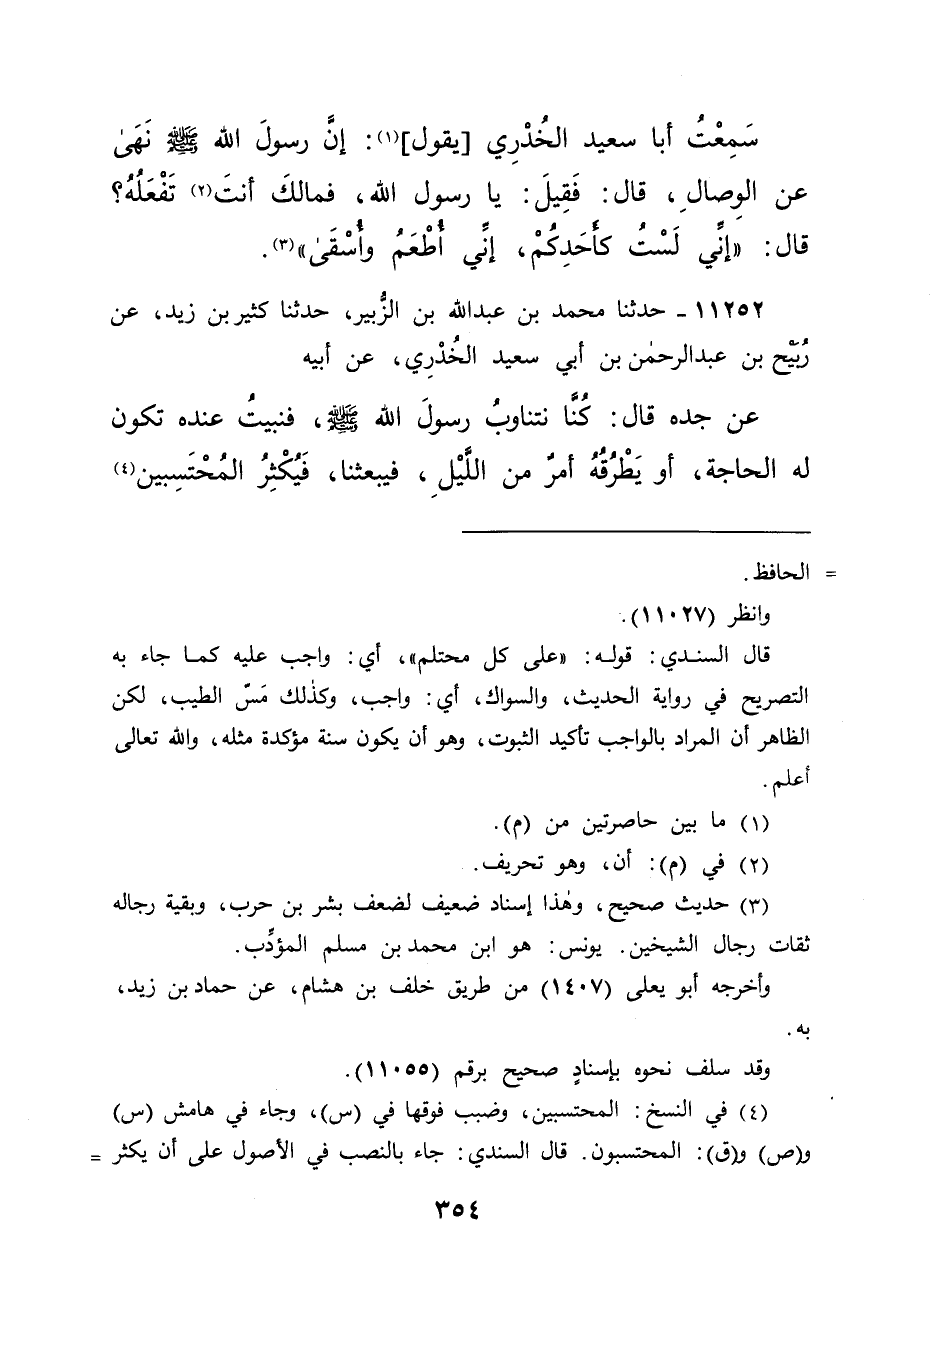 سَمِعْتُ أبا سعيد الخُدْرِي [يقول](١): إنَّ رسولَ الله ﷺ نَهَىٰ
عن الوِصالِ، قال: فَقِيلَ: يا رسول الله، فمالكَ أنتَ(٢) تَفْعَلُهُ؟
قال: «إنِّي لَسْتُ كأَحَدِكُمْ، إنِّي أُطْعَمُ وأُسْقَىٰ»(٣).
١١٢٥٢ - حدثنا محمد بن عبدالله بن الزُّبير، حدثنا كثير بن زيد، عن
رُبَيْح بن عبدالرحمٰن بن أبي سعيد الخُدْرِي، عن أبيه
عن جده قال: كُنَّا نتناوبُ رسولَ الله ﷺ، فنبيتُ عنده تكون
له الحاجة، أو يَطْرُقُهُ أمرٌ من اللَّيْلِ، فيبعثنا، فَيُكْثِرُ المُحْتَسِبين(٤)
= الحافظ.
وانظر (١١٠٢٧).
قال السندي: قوله: «على كل محتلم»، أي: واجب عليه كما جاء به
التصريح في رواية الحديث، والسواك، أي: واجب، وكذٰلك مَسّ الطيب، لكن
الظاهر أن المراد بالواجب تأكيد الثبوت، وهو أن يكون سنة مؤكدة مثله، والله تعالى
أعلم.
(١) ما بين حاصرتين من (م).
(٢) في (م): أن، وهو تحريف.
(٣) حديث صحيح، وهٰذا إسناد ضعيف لضعف بشر بن حرب، وبقية رجاله
ثقات رجال الشيخين. يونس: هو ابن محمد بن مسلم المؤدِّب.
وأخرجه أبو يعلى (١٤٠٧) من طريق خلف بن هشام، عن حماد بن زيد،
به.
وقد سلف نحوه بإسنادٍ صحيح برقم (١١٠٥٥).
(٤) في النسخ: المحتسبين، وضبب فوقها في (س)، وجاء في هامش (س)
و(ص) و(ق): المحتسبون. قال السندي: جاء بالنصب في الأصول على أن يكثر =
٣٥٤